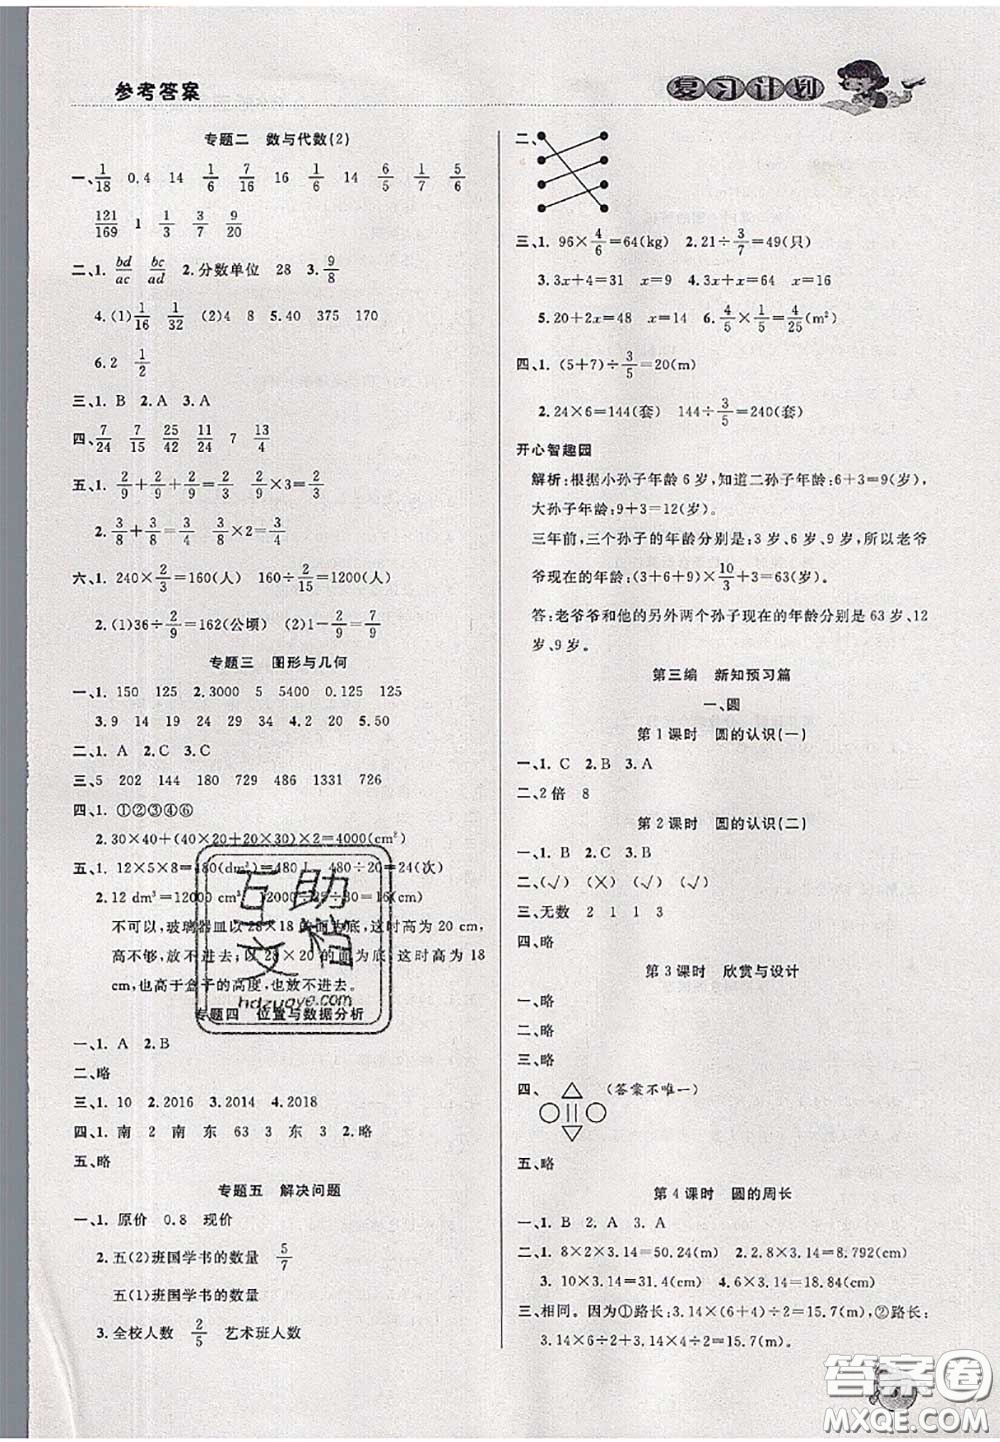 参考答案
复习计划
专题二 数与代数(2)
一、1/18 0.4 14 1/6 7/16 16 1/6 14 6/5 1/7 5/6
121/169 1 1/3 3/7 9/20
二、1. bd/ac bc/ad 2.分数单位 28 3.9/8
4.(1)1/16 1/32 (2)4 8 5.40 375 170
6.2 1/2
三、1. B 2.A 3.A
四、7/24 7/15 25/42 11/24 7 13/4
五、1. 2/9+2/9+2/9=2/3 2/9×3=2/3
2.3/8+3/8=3/4 3/8×2=3/4
六、1. 240×2/3=160(人) 160÷2/15=1200(人)
2.(1)36÷2/9=162(公顷) (2)1-2/9=7/9
专题三 图形与几何
一、1. 150 125 2.3000 5 5400 0.125 125
3.9 14 19 24 29 34 4.2 20 5.50
二、1. A 2.C 3.C
三、5 202 144 180 729 486 1331 726
四、1. ①②③④⑥
2.30×40+(40×20+20×30)×2=4000(cm²)
五、1. 12×5×8=480(dm³)=480 L 480÷20=24(次)
2.12 dm³=12000 cm³ 12000÷25÷30=16(cm)
不可以,玻璃器皿以28×18的面为底,这时高为20 cm,
高不够,放不进去;以28×20的面为底,这时高为18
cm,也高于盒子的高度,也放不进去。
专题四 位置与数据分析
一、1. A 2.B
二、略
三、1. 10 2.2016 3.2014 4.2018
四、1. 南 2 南 东 63 3 东 3 2.略
五、略
专题五 解决问题
一、1. 原价 0.8 现价
2.五(2)班国学书的数量 5/7
五(1)班国学书的数量
3.全校人数 2/5 艺术班人数
二、
三、1. 96×4/6=64(kg) 2.21÷3/7=49(只)
3.3x+4=31 x=9 4.3x+x=64 x=16
5.20+2x=48 x=14 6.4/5×1/5=4/25(m²)
四、1. (5+7)÷3/5=20(m)
2.24×6=144(套) 144÷3/5=240(套)
开心智趣园
解析:根据小孙子年龄6岁,知道二孙子年龄:6+3=9(岁),
大孙子年龄:9+3=12(岁)。
三年前,三个孙子的年龄分别是:3岁、6岁、9岁,所以老爷
爷现在的年龄:(3+6+9)×10/3+3=63(岁)。
答:老爷爷和他的另外两个孙子现在的年龄分别是63岁、12
岁、9岁。
第三编 新知预习篇
一、圆
第1课时 圆的认识(一)
一、1. C 2.B 3.A
二、2倍 8
第2课时 圆的认识(二)
一、1. B 2.B
二、(√) (×) (√) (√)
三、无数 2 1 1 3
四、略
第3课时 欣赏与设计
一、略
二、略
三、略
四、 (答案不唯一)
五、略
第4课时 圆的周长
一、1. B 2. A 3. A
二、1. 8×2×3.14=50.24(cm) 2.2.8×3.14=8.792(cm)
3. 10×3.14=31.4(cm) 4.6×3.14=18.84(cm)
三、相同。因为①路长:3.14×(6+4)÷2=15.7(m),②路长:
3.14×6÷2+3.14×4÷2=15.7(m)。
互助文档
hdzuoye.com
答案圈
MXQE.COM